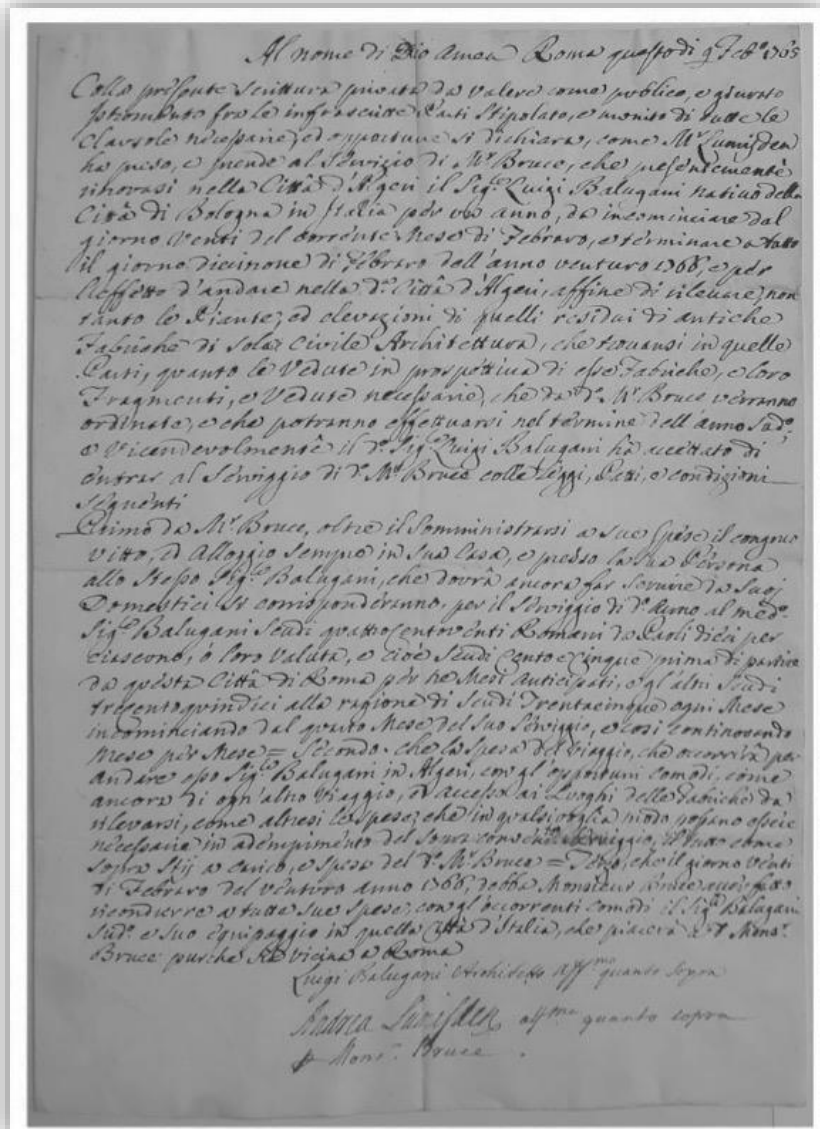 Al nome di Dio Amen Roma questo dì 9 Feb.o 1765
Colla presente scrittura privata da valere come publico, e giurato
Istromento fra le infrascritte Parti Stipolato, e munito di tutte le
Clausole necessarie, ed opportune si dichiara, come Mr. Lumisden
ha preso, e prende al Servizio di Mr. Bruce, che presentemente
ritrovasi nella Città d'Algeri il Sig.e Luigi Balugani nativo della
Città di Bologna in Italia per un anno, da incominciare dal
giorno Venti del corrente Mese di Febraro, e terminare a tutto
il giorno dicinove di Febraro dell'anno venturo 1766, e per
l'effetto d'andare nella d.a Città d'Algeri, affine di rilevare, non
tanto le Piante, ed elevazioni di quelli residui di antiche
Fabriche di sola Civile Architettura, che trovansi in quelle
Parti, quanto le Vedute in prospettiva di esse Fabriche, e loro
Fragmenti, e Vedute necessarie, che da d.o Mr. Bruce verranno
ordinate, e che potranno effettuarsi nel termine dell'anno Sud.o,
e Vicendevolmente il d.o Sig.e Luigi Balugani ha accettato di
entrar al Serviggio di d.o Mr. Bruce colle Leggi, Patti, e condizioni
seguenti
Primo da Mr. Bruce, oltre il Somministrarsi a sue Spese il congruo
vitto, ed Alloggio sempre in Sua Casa, e presso la sua Persona
allo Stesso Sig.e Balugani, che dovrà ancora far servire da Suoj
Domestici Si corrisponderanno, per il Serviggio di d.o Anno al med.o
Sig.e Balugani Scudi quattrocentoventi Romani da Paoli dieci per
ciascuno, o loro Valuta, e cioè Scudi Cento e Cinque prima di partire
da questa Città di Roma per tre Mesi anticipati, e gl'altri Scudi
trecentoquindici alla ragione di Scudi Trentacinque ogni Mese
incominciando dal quarto Mese del Suo Serviggio, e così continovando
Mese per Mese = Secondo che la Spesa del Viaggio, che occorrerà per
Andare esso Sig.e Balugani in Algeri, con gl'opportuni comodi, come
ancora di ogn'altro Viaggio, ed accesso ai Luoghi delle Fabriche da
rilevarsi, come altresì le Spese, che in qualsivoglia modo possano essere
necessarie in adempimento del Serviggio, il tutto come
sopra Stij a carico, e spesa del d.o Mr. Bruce = Terzo, che il giorno Venti
di Febraro del venturo anno 1766, debba Monsieur Bruce
ricondurre a tutte sue Spese, con gl'occorrenti comodi il Sig.e Balugani
Sud.o e Suo Equipaggio in quella Città d'Italia, che piacerà a d.o Mons.r
Bruce purche sia vicina a Roma
Luigi Balugani Architetto aff.mo quanto sopra
Andrea Lumisden aff.mo quanto sopra
Mons.r Bruce.